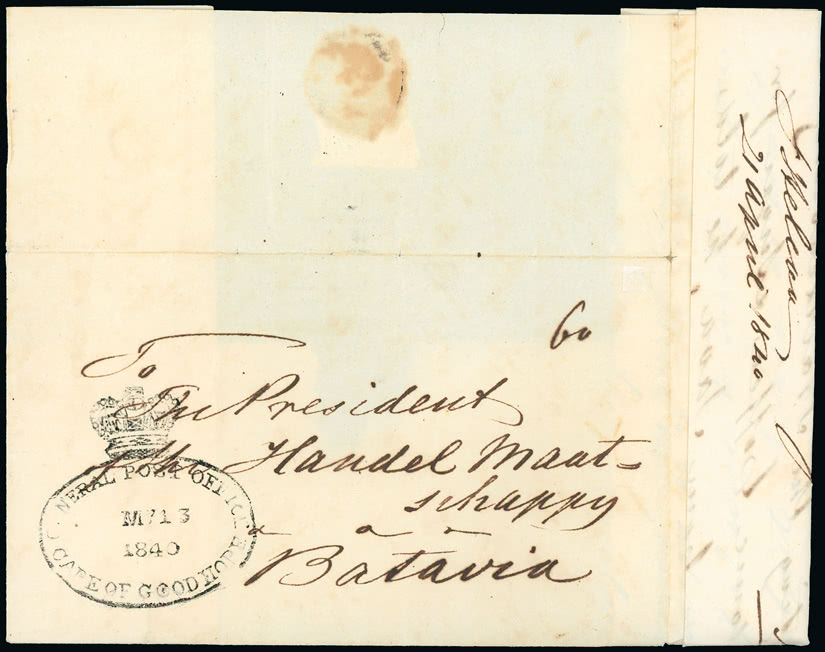 To
The President
of the Handel Maat-
schappy
a
Batavia
60
GENERAL POST OFFICE
MY 13
1840
CAPE OF GOOD HOPE
St Helena
21 April 1840